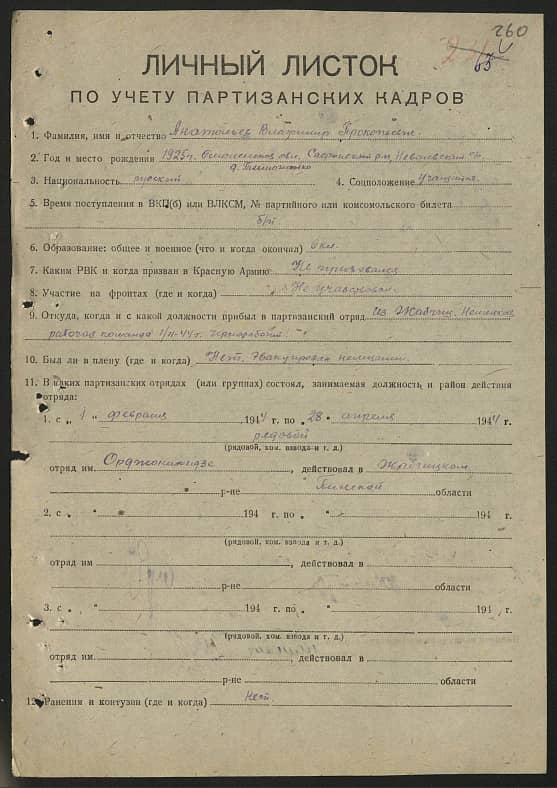 260
63
ЛИЧНЫЙ ЛИСТОК
ПО УЧЕТУ ПАРТИЗАНСКИХ КАДРОВ
1. Фамилия, имя и отчество Анатольев Владимир Прокопьевич
2. Год и место рождения 1925г. Смоленская обл.
3. Национальность русский 4. Соцположение Учащийся
5. Время поступления в ВКП(б) или ВЛКСМ, № партийного или комсомольского билета
б/п
6. Образование: общее и военное (что и когда окончал) 6 кл.
7. Каким РВК и когда призван в Красную Армию Не призывался
8. Участие на фронтах (где и когда) Не участвовал
9. Откуда, когда и с какой должности прибыл в партизанский отряд из Немецкая
рабочая команда 1/II-44г. чернорабочий
10. Был ли в плену (где и когда) Нет. Эвакуирован немцами.
11. В каких партизанских отрядах (или группах) состоял, занимаемая должность и район действия
отряда:
1. с „1" февраля 1944 г. по „28" апреля 1944 г.
рядовой
(рядовой, ком. взвода и т. д.)
отряд им. Орджоникидзе, действовал в
р-не Пинской области
2. с „ " 194 г. по „ " 194 г.
(рядовой, ком. взвода и т. д.)
отряд им , действовал в
р-не области
3. с „ " 194 г. по „ " 194 г.
(рядовой, ком. взвода и т. д.)
отряд им , действовал в
р-не области
12. Ранения и контузии (где и когда) Нет